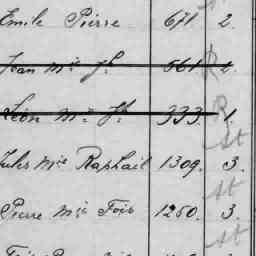 Emile Pierre 671 2.
Jean Mie Jh 561 2.
Léon Mie Jh 333. 1.
Jules Mie Raphael 1309. 3.
St
Pierre Mie Fois 1250. 3.
St